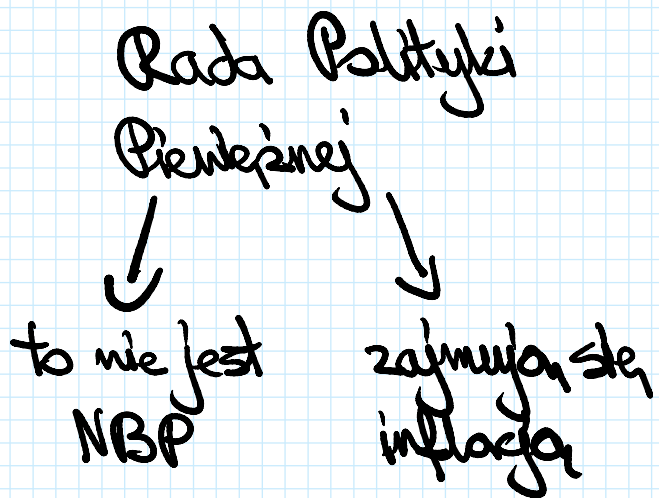 Rada Polityki
Pieniężnej
to nie jest
NBP
zajmują się
inflacją